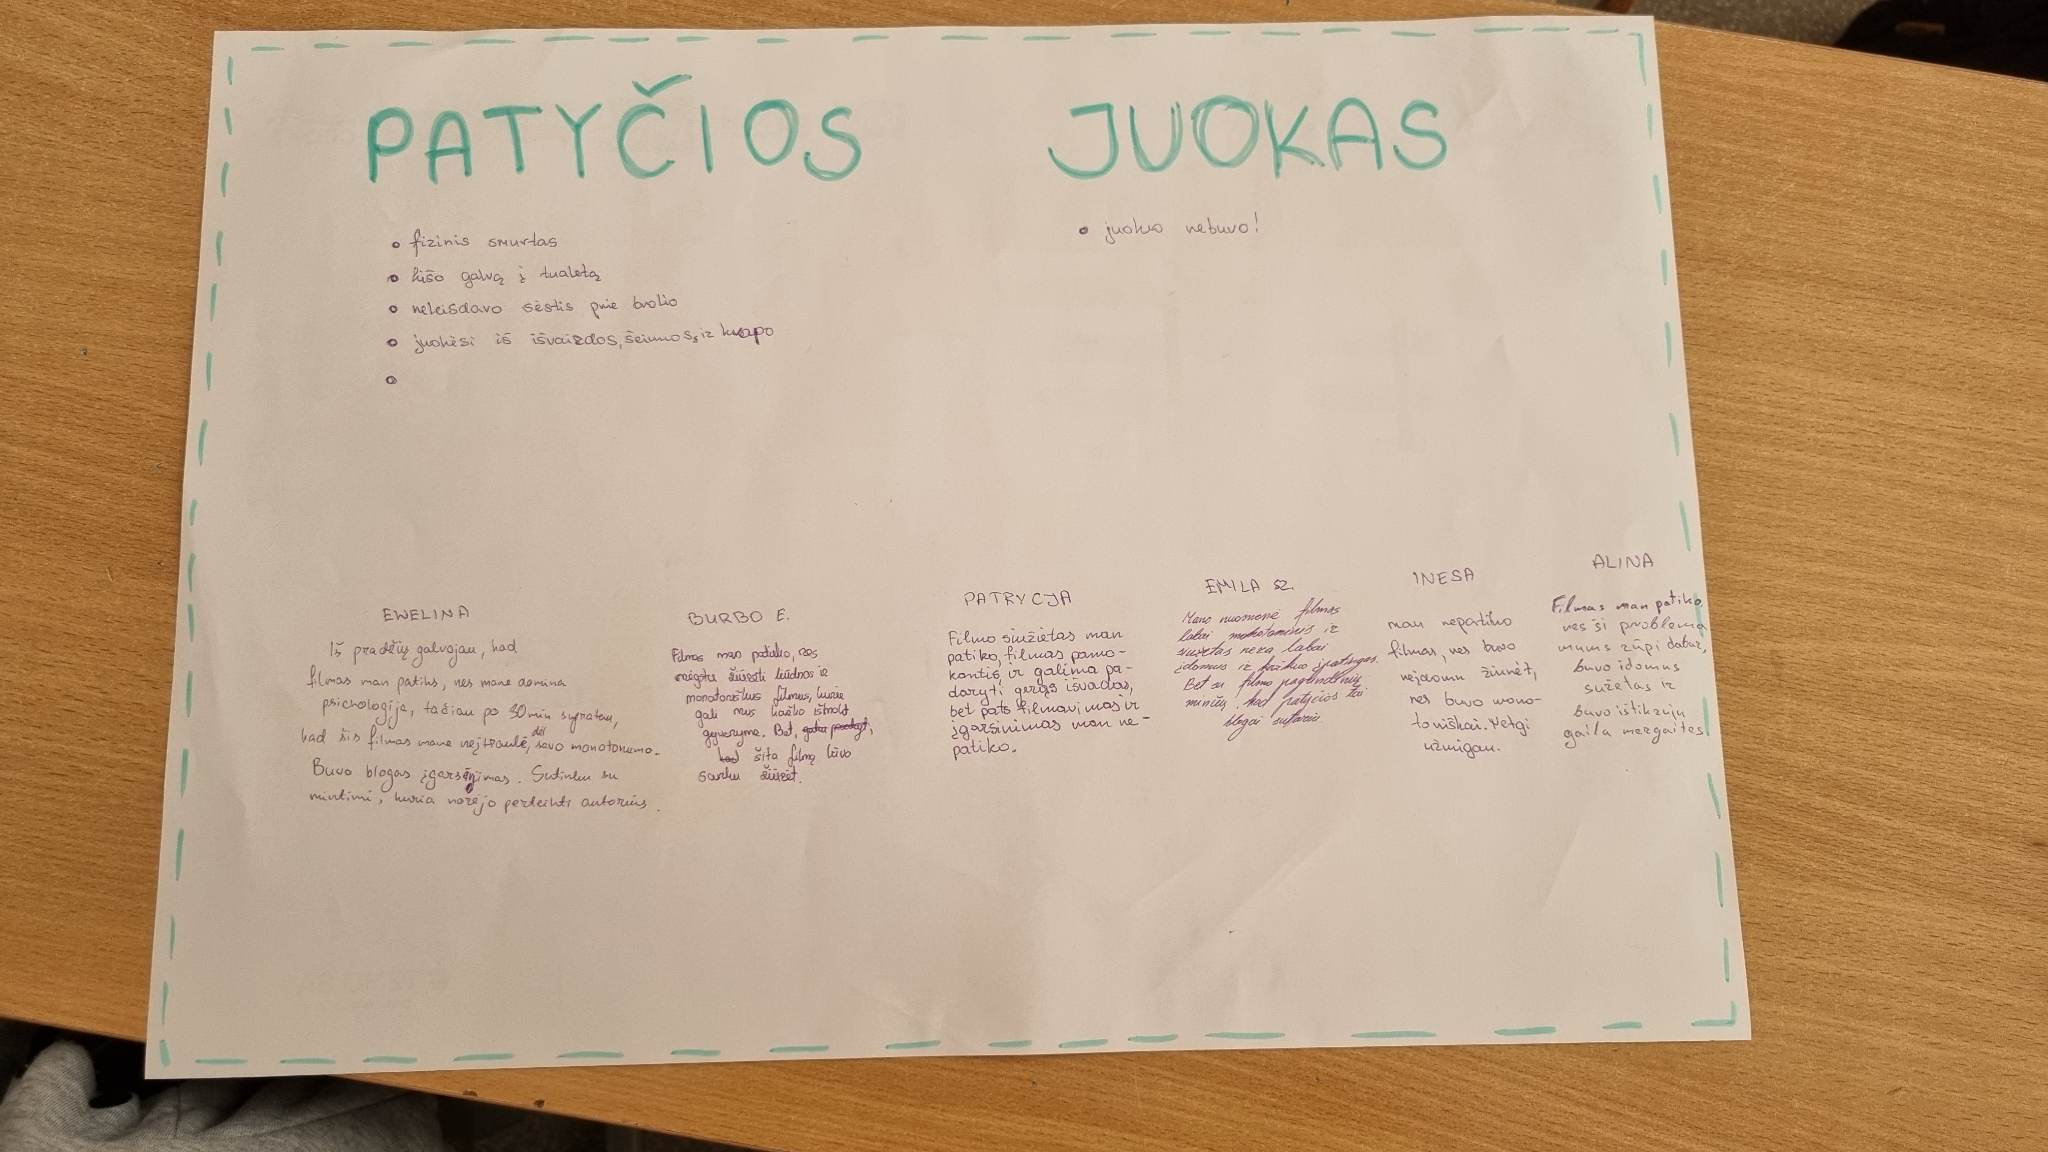 PATYČIOS
• fizinis smurtas
• kišo galvą į tualetą
• neleisdavo sėstis prie brolio
• juokėsi iš išvaizdos, šeimos, ir kvapo
•
JUOKAS
• juoko nebuvo!
EWELINA
Iš pradžių galvojau, kad
filmas man patiks, nes mane domina
psichologija, tačiau po 30min supratau,
kad šis filmas mane neįtraukė, dėl savo monotonumo.
Buvo blogas įgarsinimas. Sutinku su
mintimi, kuria norėjo perteikti autorius.
BURBO E.
Filmas man patiko, nes
mėgstu žiūrėti liūdnos ir
monotoniškus filmus, kurie
gali mus kažko išmokt
gyvenyme. Bet,
šita filmą būvo
sunku žiūrėt.
PATRYCJA
Filmo siužietas man
patiko, filmas pamo-
kantis, ir galima pa-
daryti geras išvadas,
bet pats filmavimas ir
įgarsinimas man ne-
patiko.
EMILA SZ.
Mano nuomonė filmas
labai monotoninis ir
siužetas nėra labai
įdomus ir kažkuo ypatingas.
Bet su filmo pagrindinių
minčių, kad patyčios tai
blogai sutariu
INESA
man nepatiko
filmas, nes buvo
neįdomu žiūrėt,
nes buvo mono-
toniškai. Netgi
užmigau.
ALINA
Filmas man patiko,
nes ši problema
mums rūpi dabar,
buvo įdomus
sužetas ir
buvo ištikrųjų
gaila mergaitės